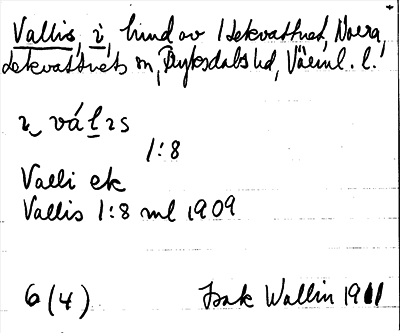 Vallis, i, hmd av Dekvattnet, Norra
Dekvattnets sn, Fryksdals hd, Värml. l.
ı vá l ıs
1:8
Valli ek
Vallis 1:8 ml 1909
6 (4) Isak Wallin 1911